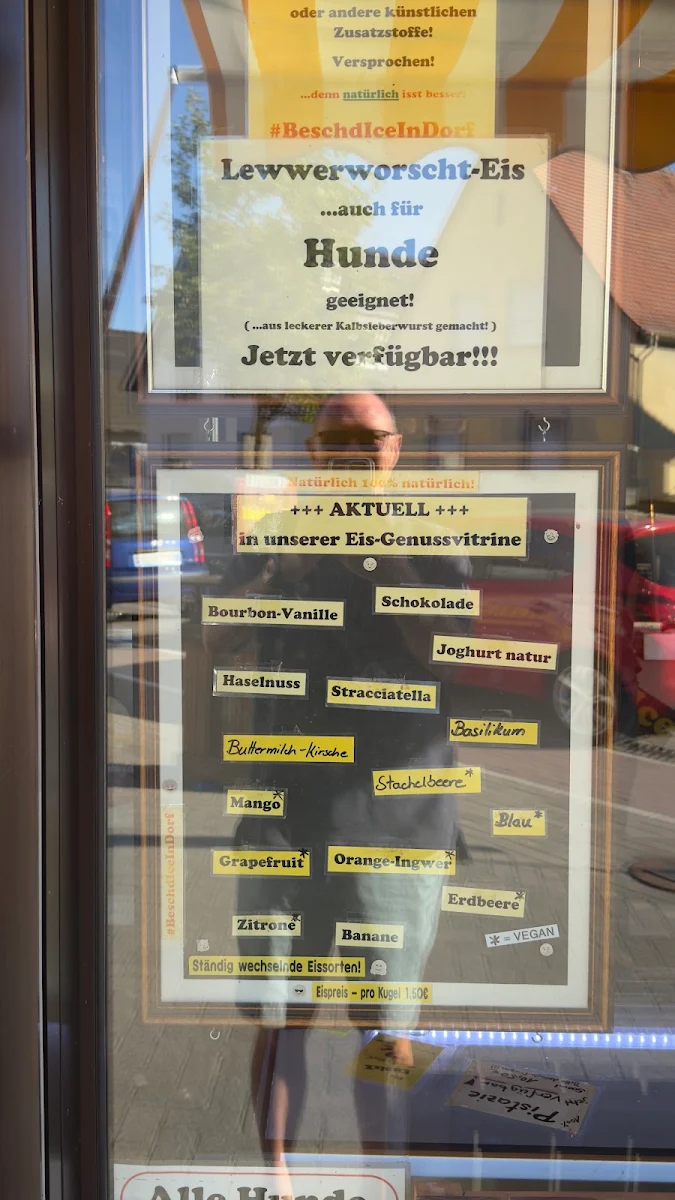 oder andere künstlichen
Zusatzstoffe!
Versprochen!
...denn natürlich isst besser!
#BeschdIceInDorf
Lewwerworscht-Eis
...auch für
Hunde
geeignet!
( ...aus leckerer Kalbsleberwurst gemacht! )
Jetzt verfügbar!!!
Natürlich 100% natürlich!
+++ AKTUELL +++
in unserer Eis-Genussvitrine
Bourbon-Vanille
Schokolade
Joghurt natur
Haselnuss
Stracciatella
Basilikum
Buttermilch-Kirsche
Stachelbeere*
Mango*
Blau*
Grapefruit*
Orange-Ingwer*
Erdbeere*
Zitrone*
Banane
* = VEGAN
#BeschdIceInDorf
Ständig wechselnde Eissorten!
Eispreis – pro Kugel 1,50€
Pistazie
jetzt verfügbar!
Alle Hunde